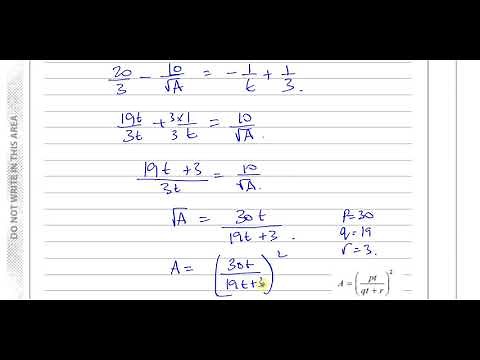 DO NOT WRITE IN THIS AREA
20/3 - 10/√A = -1/t + 1/3.
19t/3t + 3×1/3 t = 10/√A.
19t + 3/3t = 10/√A.
√A = 30t/19t + 3.
P=30
q=19
r=3.
A = (30t/19t+3)²
A = (pt/qt + r)²